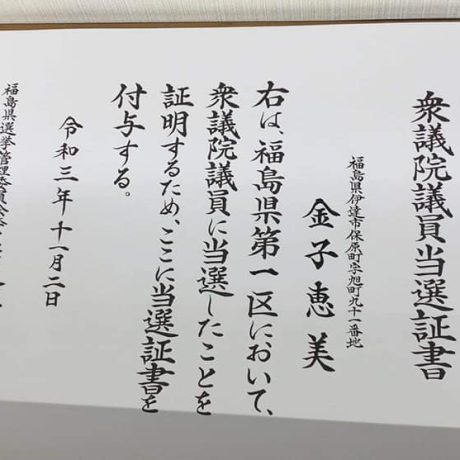 衆議院議員当選証書
福島県伊達市保原町字旭町九十一番地
金子恵美
右は、福島県第一区において、
衆議院議員に当選したことを
証明するため、ここに当選証書を
付与する。
令和三年十一月二日
福島県選挙管理委員会